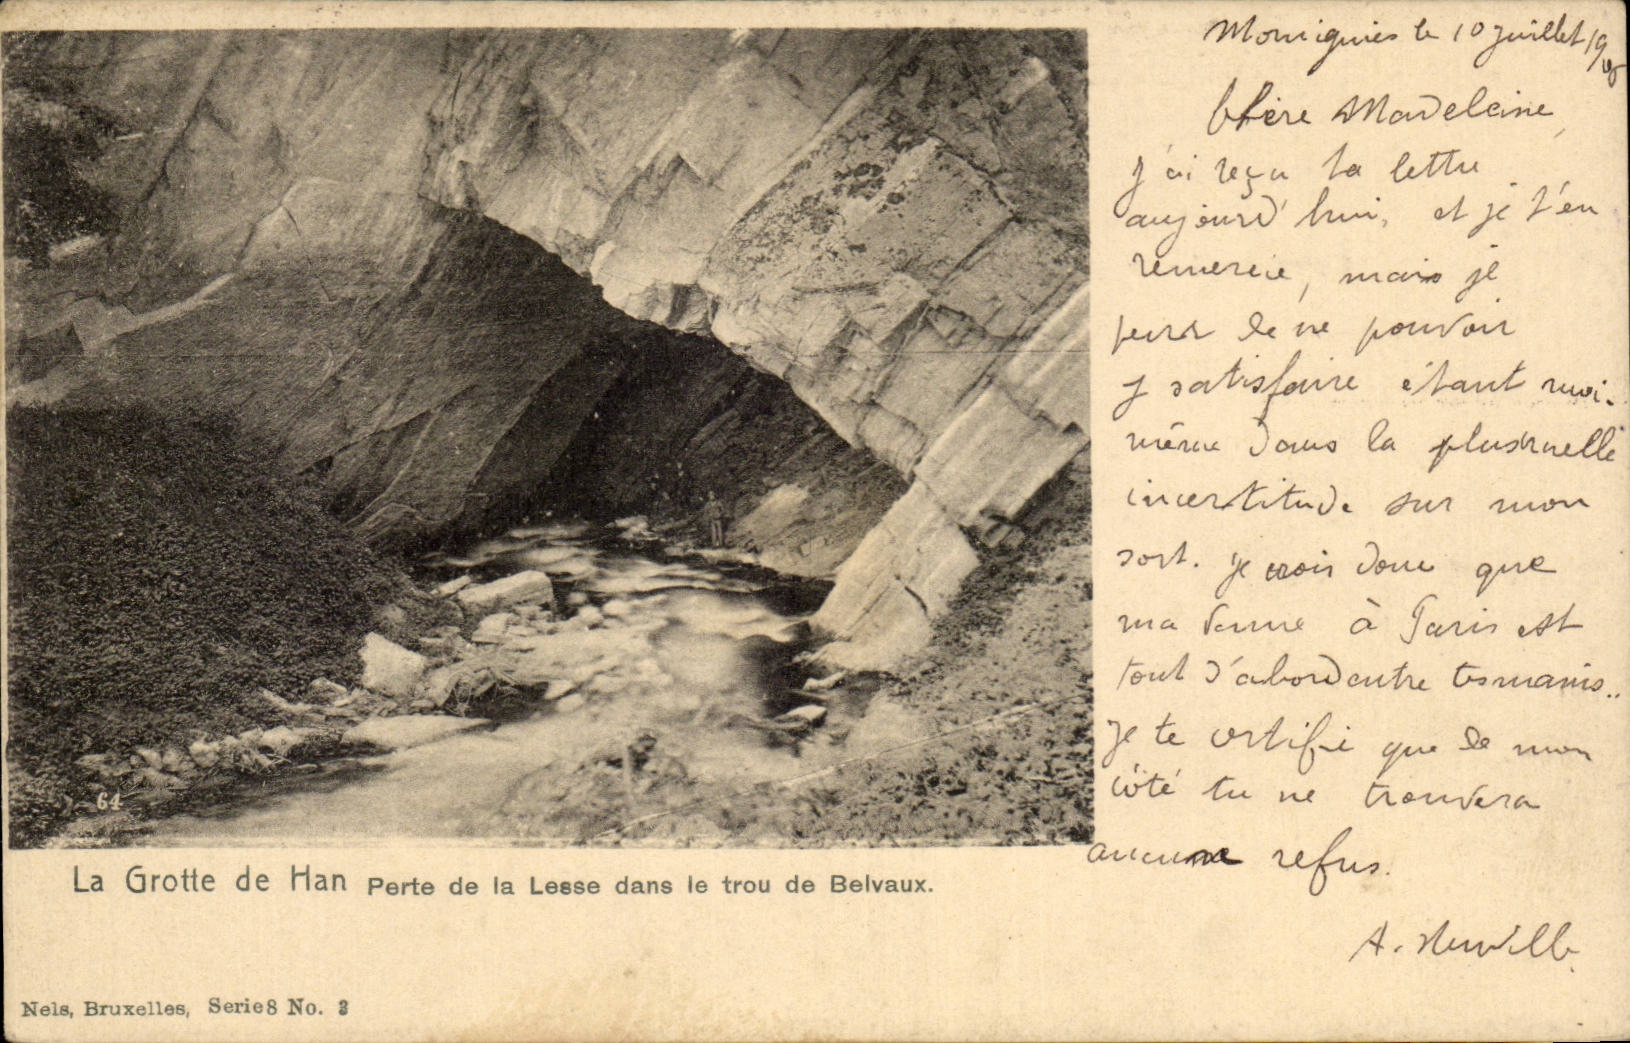 Momignies le 10 Juillet 19
Chère Madeleine,
J'ai reçu ta lettre
aujourd'hui, et je t'en
remercie, mais je
de ne pouvoir
y satisfaire étant moi-
même dans la plus cruelle
incertitude sur mon
sort. Je crois donc que
ma venue à Paris est
tout d'abord entre tes mains..
Je te certifie que de mon
côté tu ne trouvera
aucune refus.
A. Neuville
64
La Grotte de Han Perte de la Lesse dans le trou de Belvaux.
Nels, Bruxelles, Serie 8 No. 3